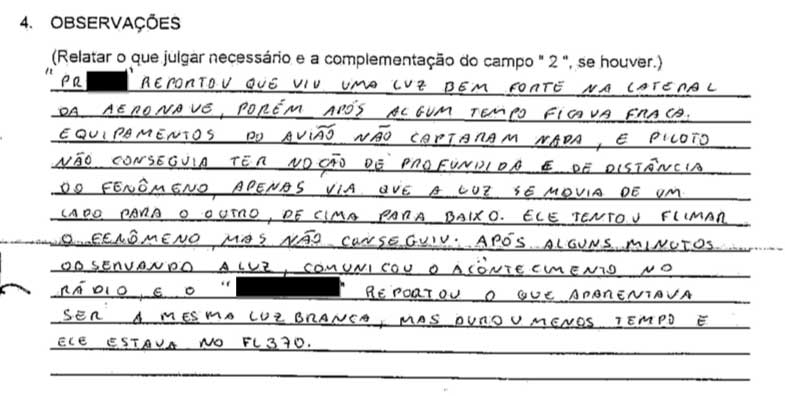 4. OBSERVAÇÕES
(Relatar o que julgar necessário e a complementação do campo " 2 ", se houver.)
"PR " REPORTOU QUE VIU UMA LUZ BEM FORTE NA LATERAL
DA AERONAVE, PORÉM APÓS ALGUM TEMPO FICAVA FRACA.
EQUIPAMENTOS DO AVIÃO NÃO CAPTARAM NADA, E PILOTO
NÃO CONSEGUIA TER NOÇÃO DE PROFUNDIDA E DE DISTÂNCIA
DO FENÔMENO, APENAS VIA QUE A LUZ SE MOVIA DE UM
LADO PARA O OUTRO, DE CIMA PARA BAIXO. ELE TENTOU FLIMAR
O FENÔMENO, MAS NÃO CONSEGUIU. APÓS ALGUNS MINUTOS
OBSERVANDO A LUZ, COMUNICOU O ACONTECIMENTO NO
RÁDIO, E O " " REPORTOU O QUE APARENTAVA
SER A MESMA LUZ BRANCA, MAS DUROU MENOS TEMPO E
ELE ESTAVA NO FL370.